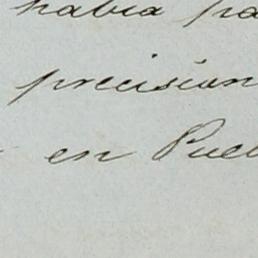 había pa
precision
en Puel